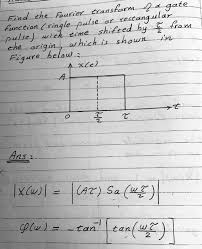 Find the Fourier transform of a gate
function (single pulse or rectangular
pulse) with time shifted by τ/2 from
the origin, which is shown in
Figure below:
x(t)
A
0 τ/2 τ t
Ans:
|X(ω)| = |(Aτ) Sa(ωτ/2)|
φ(ω) = -tan⁻¹ [tan(ωτ/2)]